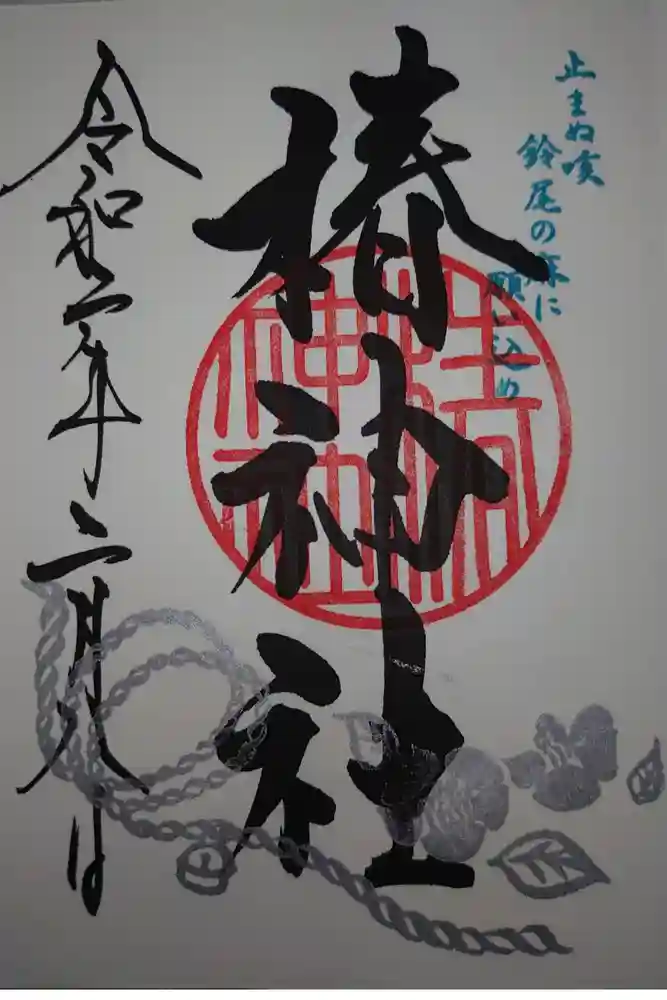 止まぬ咳
鈴尾の麻に
願い込め
椿神社
令和二年二月八日